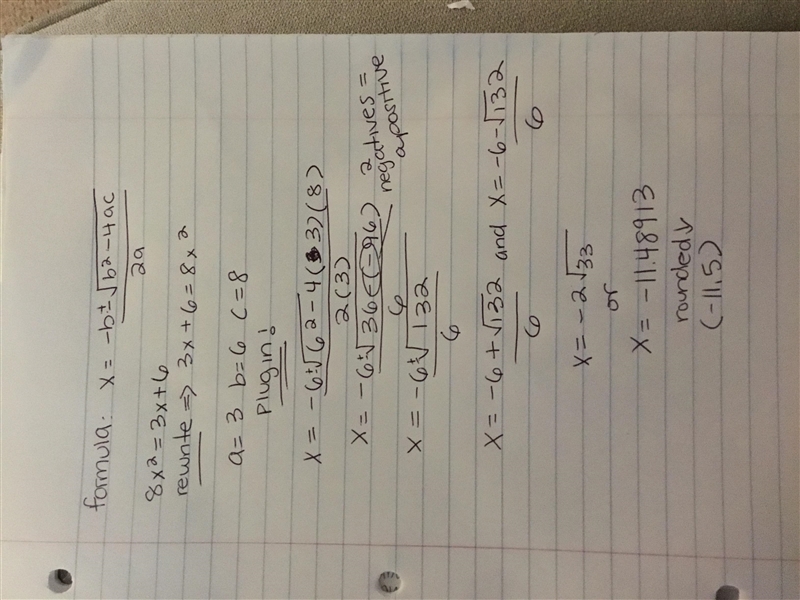 formula: x = -b ± √b² - 4ac
2a
8x² = 3x + 6
rewrite => 3x + 6 = 8x²
a = 3 b = 6 c = 8
Plug in!
x = -6 ± √6² - 4(3)(8)
2(3)
x = -6 ± √36 - (-96) 2 negatives = a positive
6
x = -6 ± √132
6
x = -6 + √132 and x = -6 - √132
6 6
x = -2√33
or
x = -11.48913
rounded ↓
(-11.5)